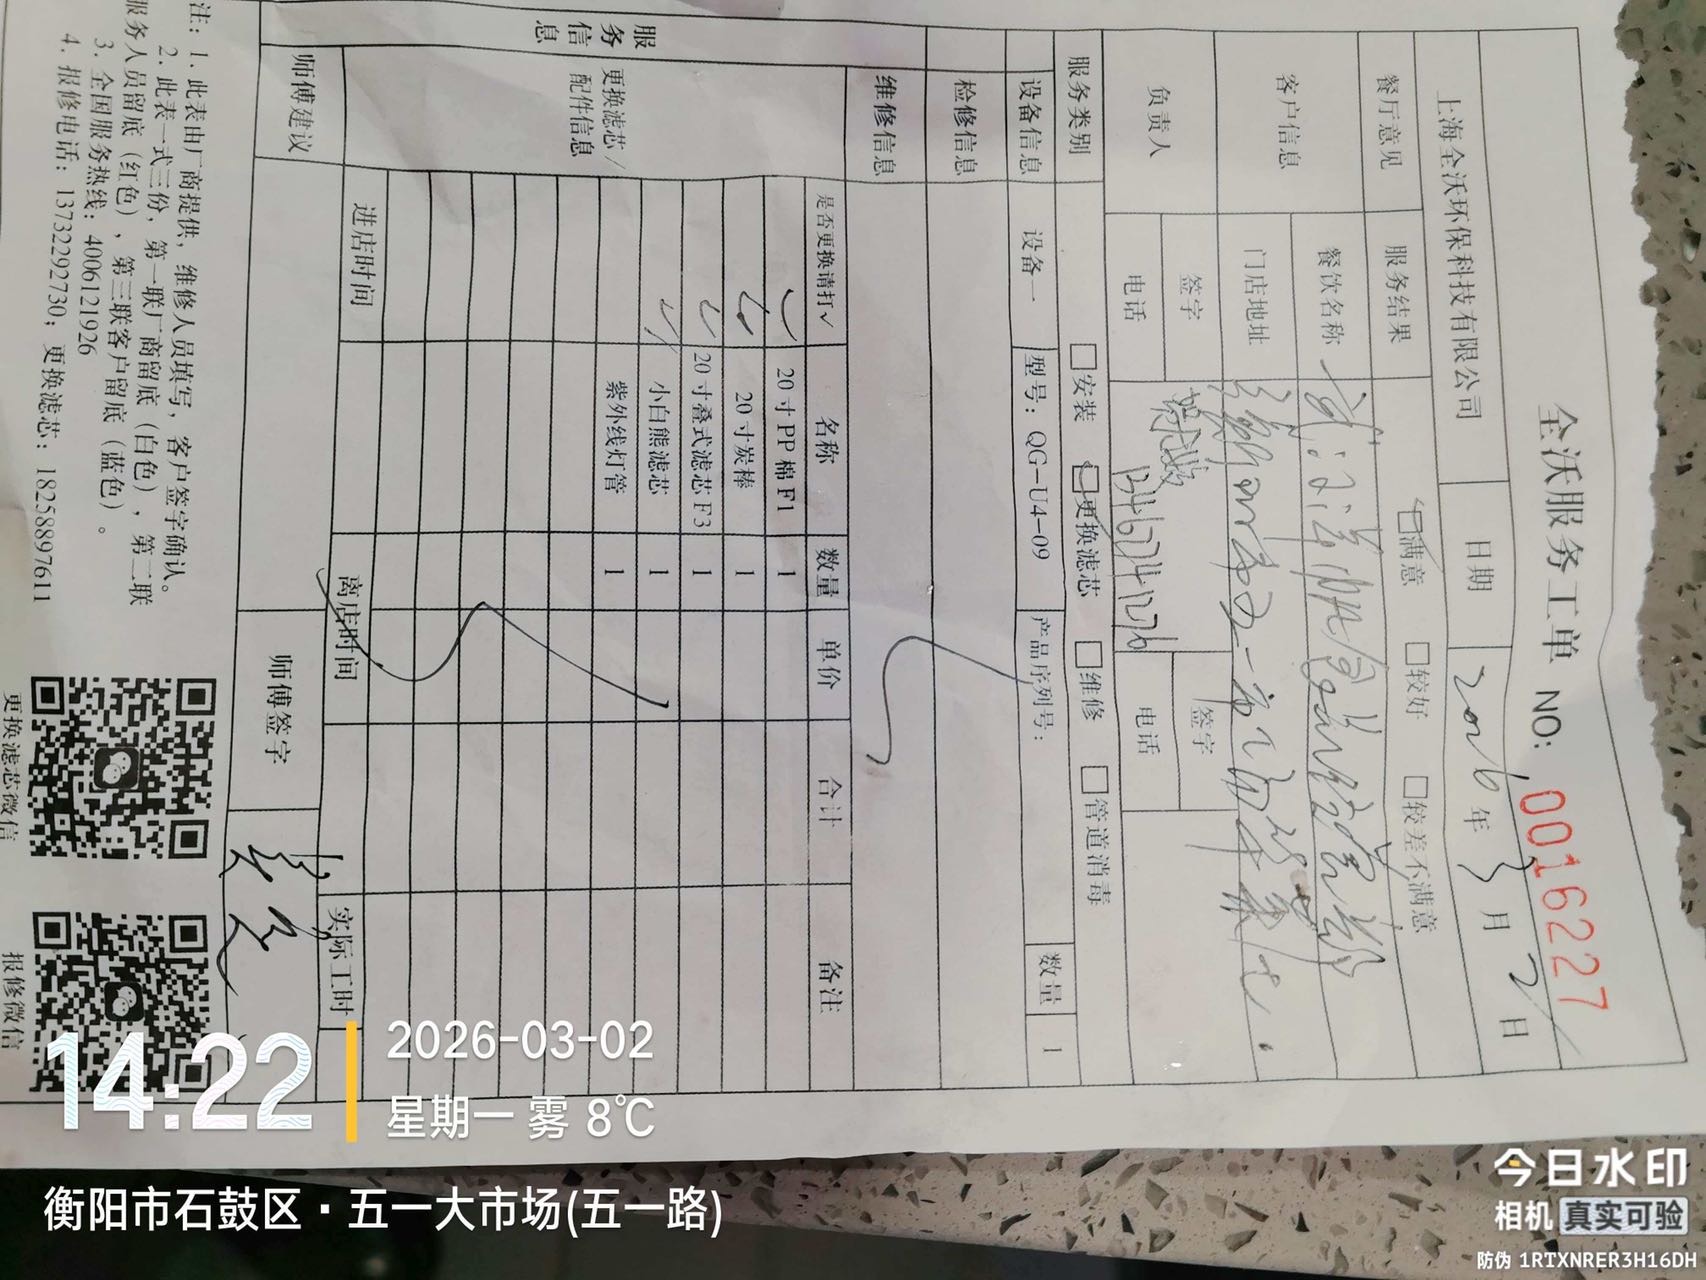 全沃服务工单 NO: 0016227
上海全沃环保科技有限公司 日期 2026年3月2日
餐厅意见 服务结果 满意 较好 较差不满意
客户信息 餐饮名称
门店地址
负责人 签字 签字
电话 电话
服务类别 安装 更换滤芯 维修 管道消毒
设备信息 设备一 型号: QG-U4-09 产品序列号: 数量 1
检修信息
维修信息
服务信息
更换滤芯/配件信息
是否更换请打✓ 名称 数量 单价 合计 备注
✓ 20寸PP棉F1 1
✓ 20寸炭棒 1
✓ 20寸叠式滤芯F3 1
✓ 小白熊滤芯 1
紫外线灯管 1
进店时间 离店时间 实际工时
师傅建议 师傅签字
注: 1. 此表由厂商提供, 维修人员填写, 客户签字确认。
2. 此表一式三份, 第一联厂商留底(白色), 第二联
服务人员留底(红色), 第三联客户留底(蓝色)。
3. 全国服务热线: 4006121926
4. 报修电话: 13732292730; 更换滤芯: 18258897611
更换滤芯微信
报修微信
14:22
2026-03-02
星期一 雾 8℃
衡阳市石鼓区·五一大市场(五一路)
今日水印
相机 真实可验
防伪 1RTXNRER3H16DH